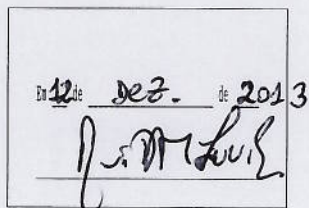 Em 12 de DEZ. de 2013